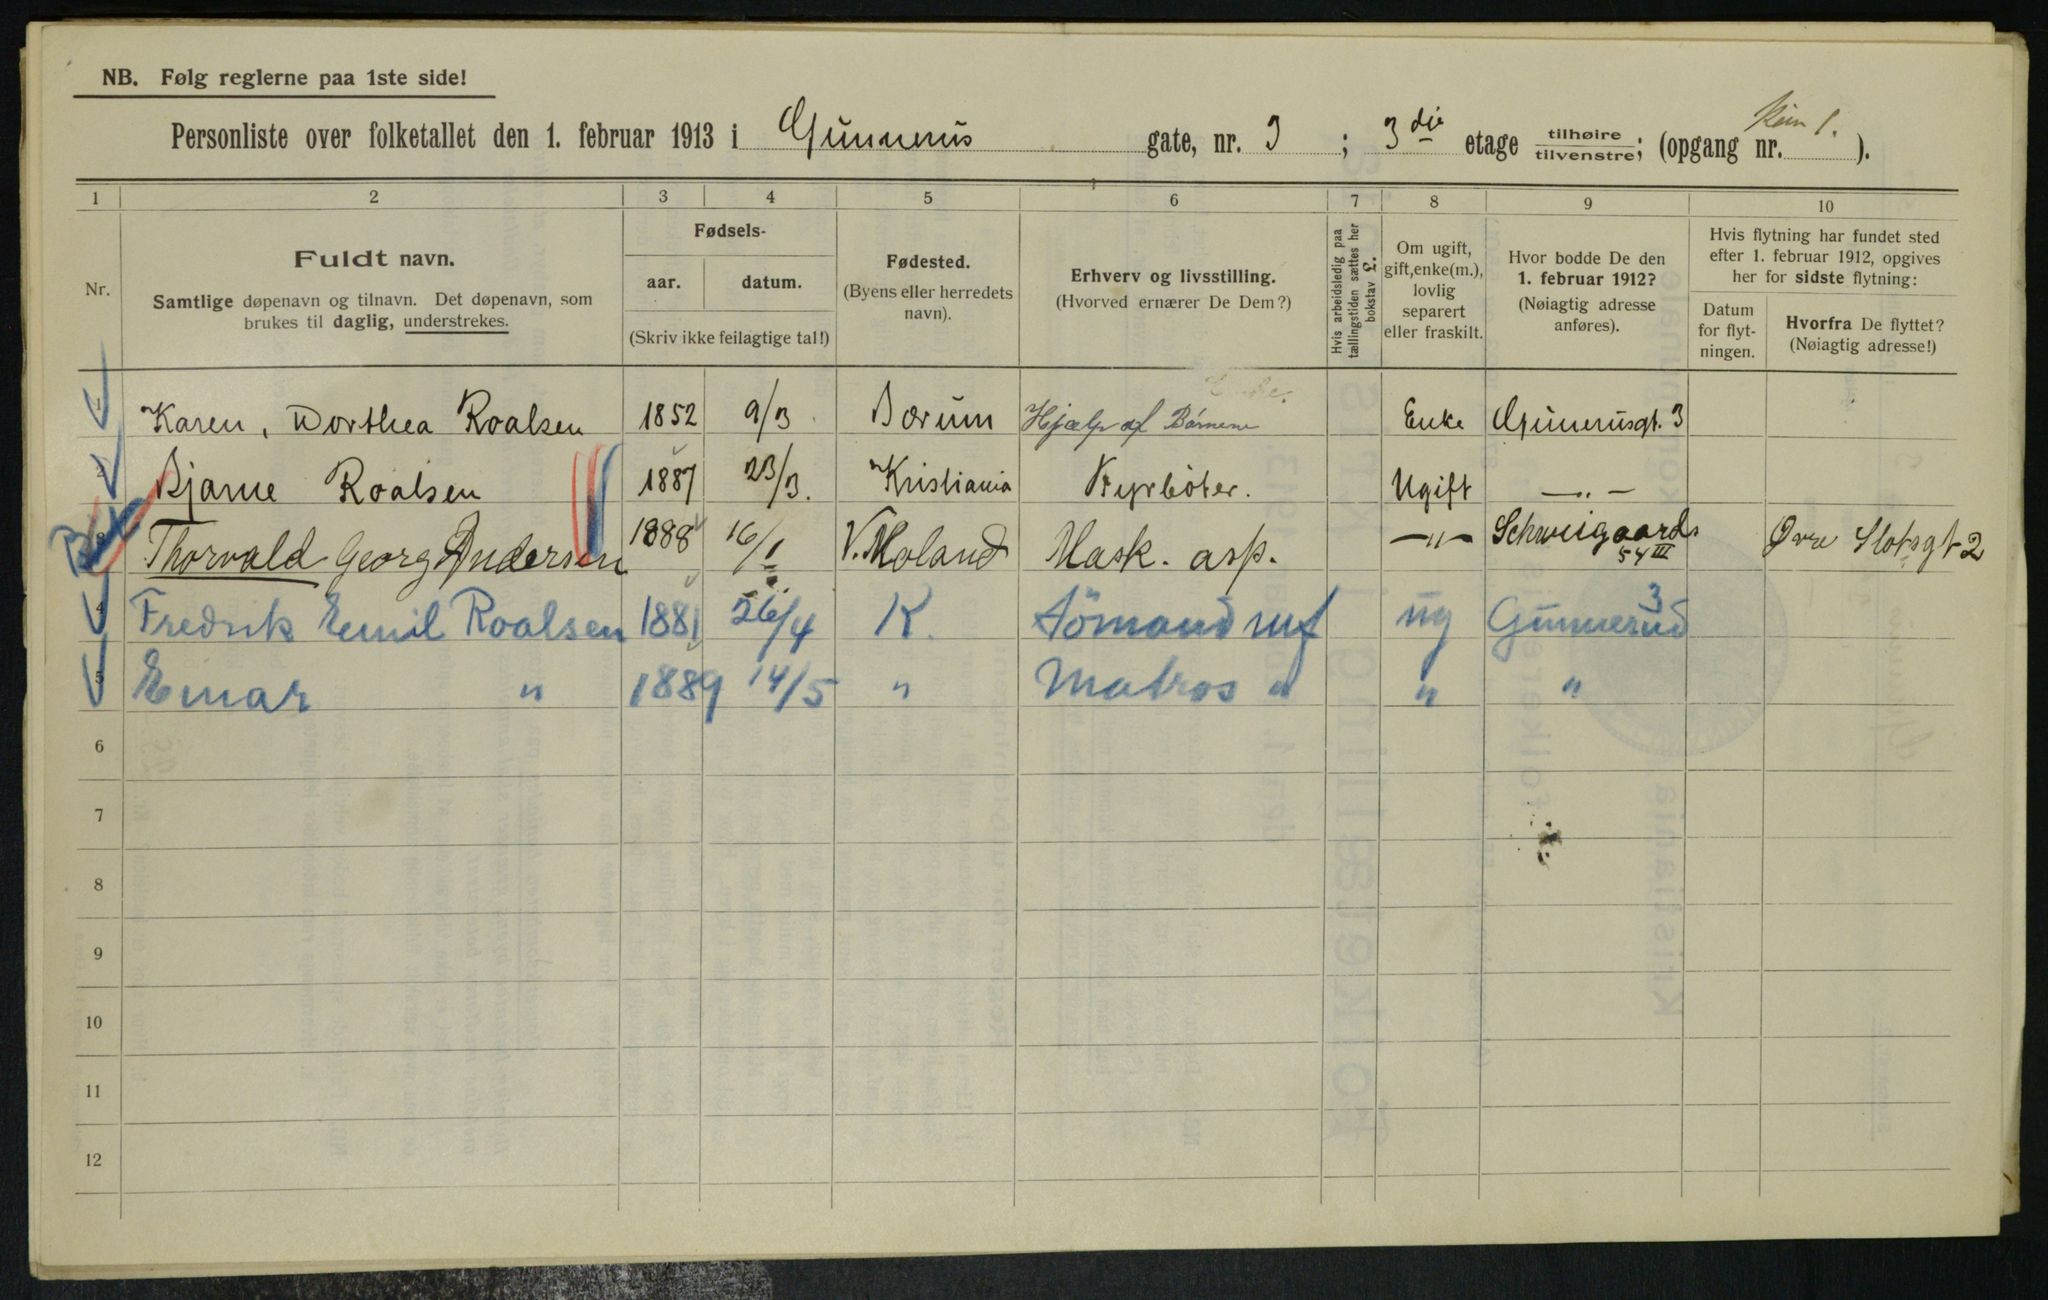 NB. Følg reglerne paa 1ste side!
Personliste over folketallet den 1. februar 1913 i Gunnerus gate, nr. 3; 3die etage tilhøire / tilvenstre; (opgang nr. ).
1 2 3 4 5 6 7 8 9 10
Nr.
Fuldt navn.
Samtlige døpenavn og tilnavn. Det døpenavn, som
brukes til daglig, understrekes.
Fødsels-
aar. datum.
(Skriv ikke feilagtige tal!)
Fødested.
(Byens eller herredets
navn).
Erhverv og livsstilling.
(Hvorved ernærer De Dem?)
Hvis arbeidsledig paa
tællingstiden sættes her
bokstav £.
Om ugift,
gift, enke(m.),
lovlig
separert
eller fraskilt.
Hvor bodde De den
1. februar 1912?
(Nøiagtig adresse
anføres).
Hvis flytning har fundet sted
efter 1. februar 1912, opgives
her for sidste flytning:
Datum
for flyt-
ningen.
Hvorfra De flyttet?
(Nøiagtig adresse!)
1 Karen, Dorthea Roalsen 1852 9/3. Bærum Hjælp af Børnene Enke Gunerusgt. 3
2 Bjarne Roalsen 1887 23/3. Kristiania Fyrbøter. Ugift —„—
3 Thorvald Georg Andersen 1888 16/1 V. Moland Mask. asp. —„— Schweigaards 54 III Øvre Slotsgt 2
4 Fredrik Emil Roalsen 1881 26/4 K. Sömand mf ug Gunnerud 3
5 Einar " 1889 14/5 " Matros " " "
6
7
8
9
10
11
12